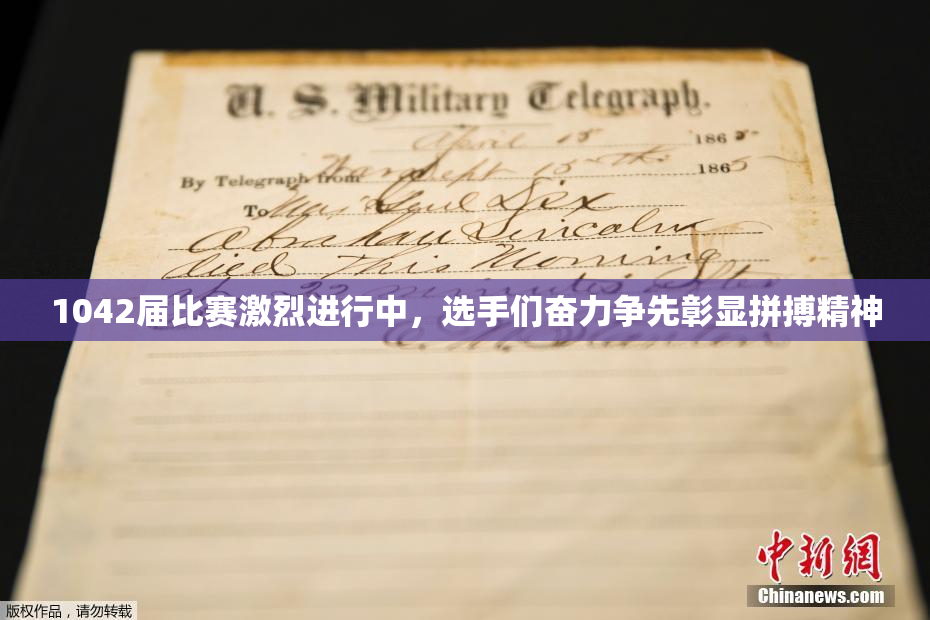 U. S. Military Telegraph.
April 15 1865
By Telegraph from War Dept 15th 1865
To Maj Genl Dix
Abraham Lincoln
died This Morning
22 minutes after
1042届比赛激烈进行中，选手们奋力争先彰显拼搏精神
Stanton
中新网
Chinanews.com
版权作品，请勿转载